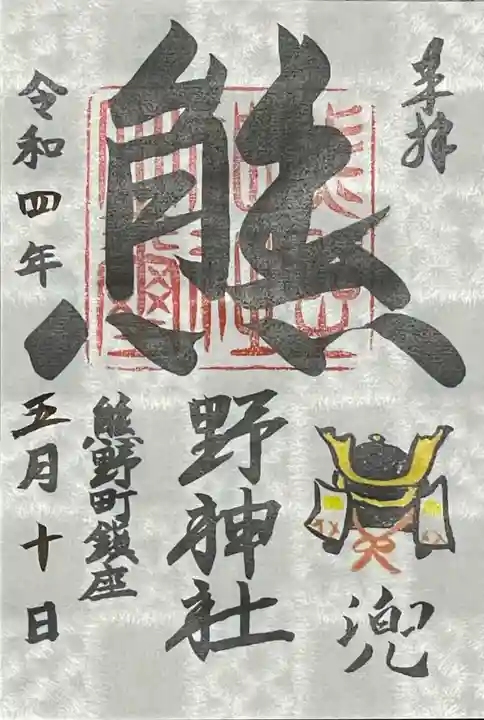 奉拝
兜
熊野神社
熊野町鎮座
令和四年五月十日